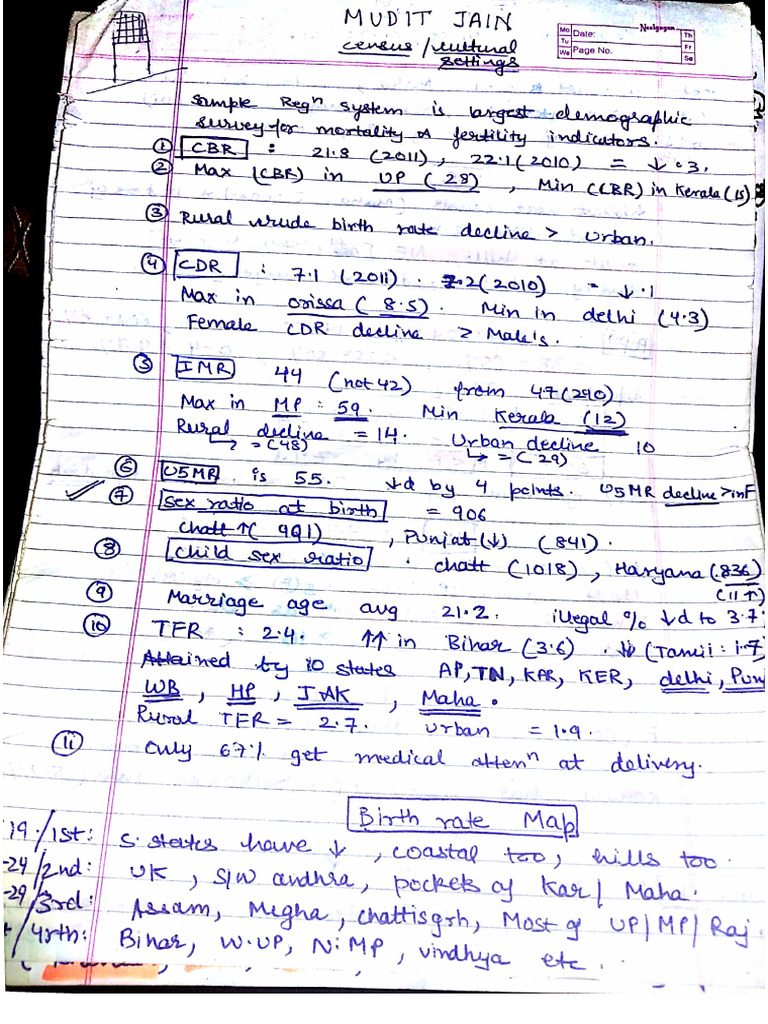 MUDIT JAIN
census / cultural settings
Neelgagan
Mo Tu We Date: Page No. Th Fr Sa
Sample Regⁿ system is largest demographic
survey for mortality & fertility indicators.
① CBR : 21.8 (2011), 22.1 (2010) = ↓ .3,
② Max (CBR) in UP (28), Min (CBR) in Kerala (15)
③ Rural crude birth rate decline > urban.
④ CDR : 7.1 (2011). 7.2 (2010) = ↓ .1
Max in orissa (8.5). Min in delhi (4.3)
Female CDR decline > Male's.
⑤ IMR 44 (not 42) from 47 (2010)
Max in MP : 59. Min Kerala (12)
Rural decline = 14. Urban decline 10
↳ = (48) ↳ = (29)
⑥ U5MR is 55. ↓d by 4 points. U5MR decline > inf
⑦ Sex ratio at birth = 906
chatt ↑ (991), Punjab (↓) (841).
⑧ child sex ratio . chatt (1018), Haryana (836)
(11 ↑)
⑨ Marriage age avg 21.2. illegal % ↓d to 3.7
⑩ TFR : 2.4. ↑↑ in Bihar (3.6). ↓↓ (Tamil : 1.7)
Attained by 10 states AP, TN, KAR, KER, delhi, Punj
WB, HP, J&K, Maha.
Rural TFR = 2.7. Urban = 1.9.
⑪ only 67% get medical attenⁿ at delivery.
Birth rate Map
19 / 1st: S. states have ↓, coastal too, hills too.
-24 / 2nd: UK, S/W andhra, pockets of Kar / Maha.
-29 / 3rd: Assam, Megha, chattisgrh, Most of UP / MP / Raj.
/ 4rth: Bihar, W.UP, N.MP, vindhya etc.